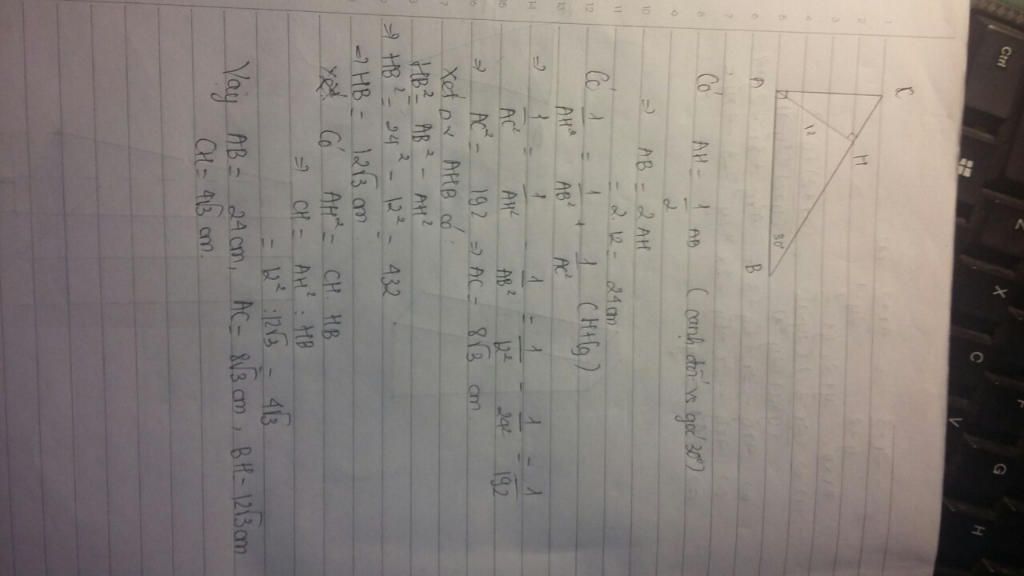 C
H
12
30°
A
B
Có AH = 1/2 AB (cạnh đối vs góc 30°)
⇒ AB = 2 AH
= 2.12 = 24cm
Có 1/AH² = 1/AB² + 1/AC² (CH + fg)
⇒ 1/AC² = 1/AH² - 1/AB² = 1/12² - 1/24² = 1/192
⇒ AC² = 192 ⇒ AC = 8√3 cm
Xét Δ v AHB có:
HB² = AB² - AH²
⇒ HB² = 24² - 12² = 432
⇒ HB = 12√3 cm
Xét Có AH² = CH. HB
⇒ CH = AH² : HB
= 12² : 12√3 = 4√3
Vậy AB = 24cm, AC = 8√3 cm, BH = 12√3cm
CH = 4√3 cm.
Ctrl
Z
X
C
F
V
G
H